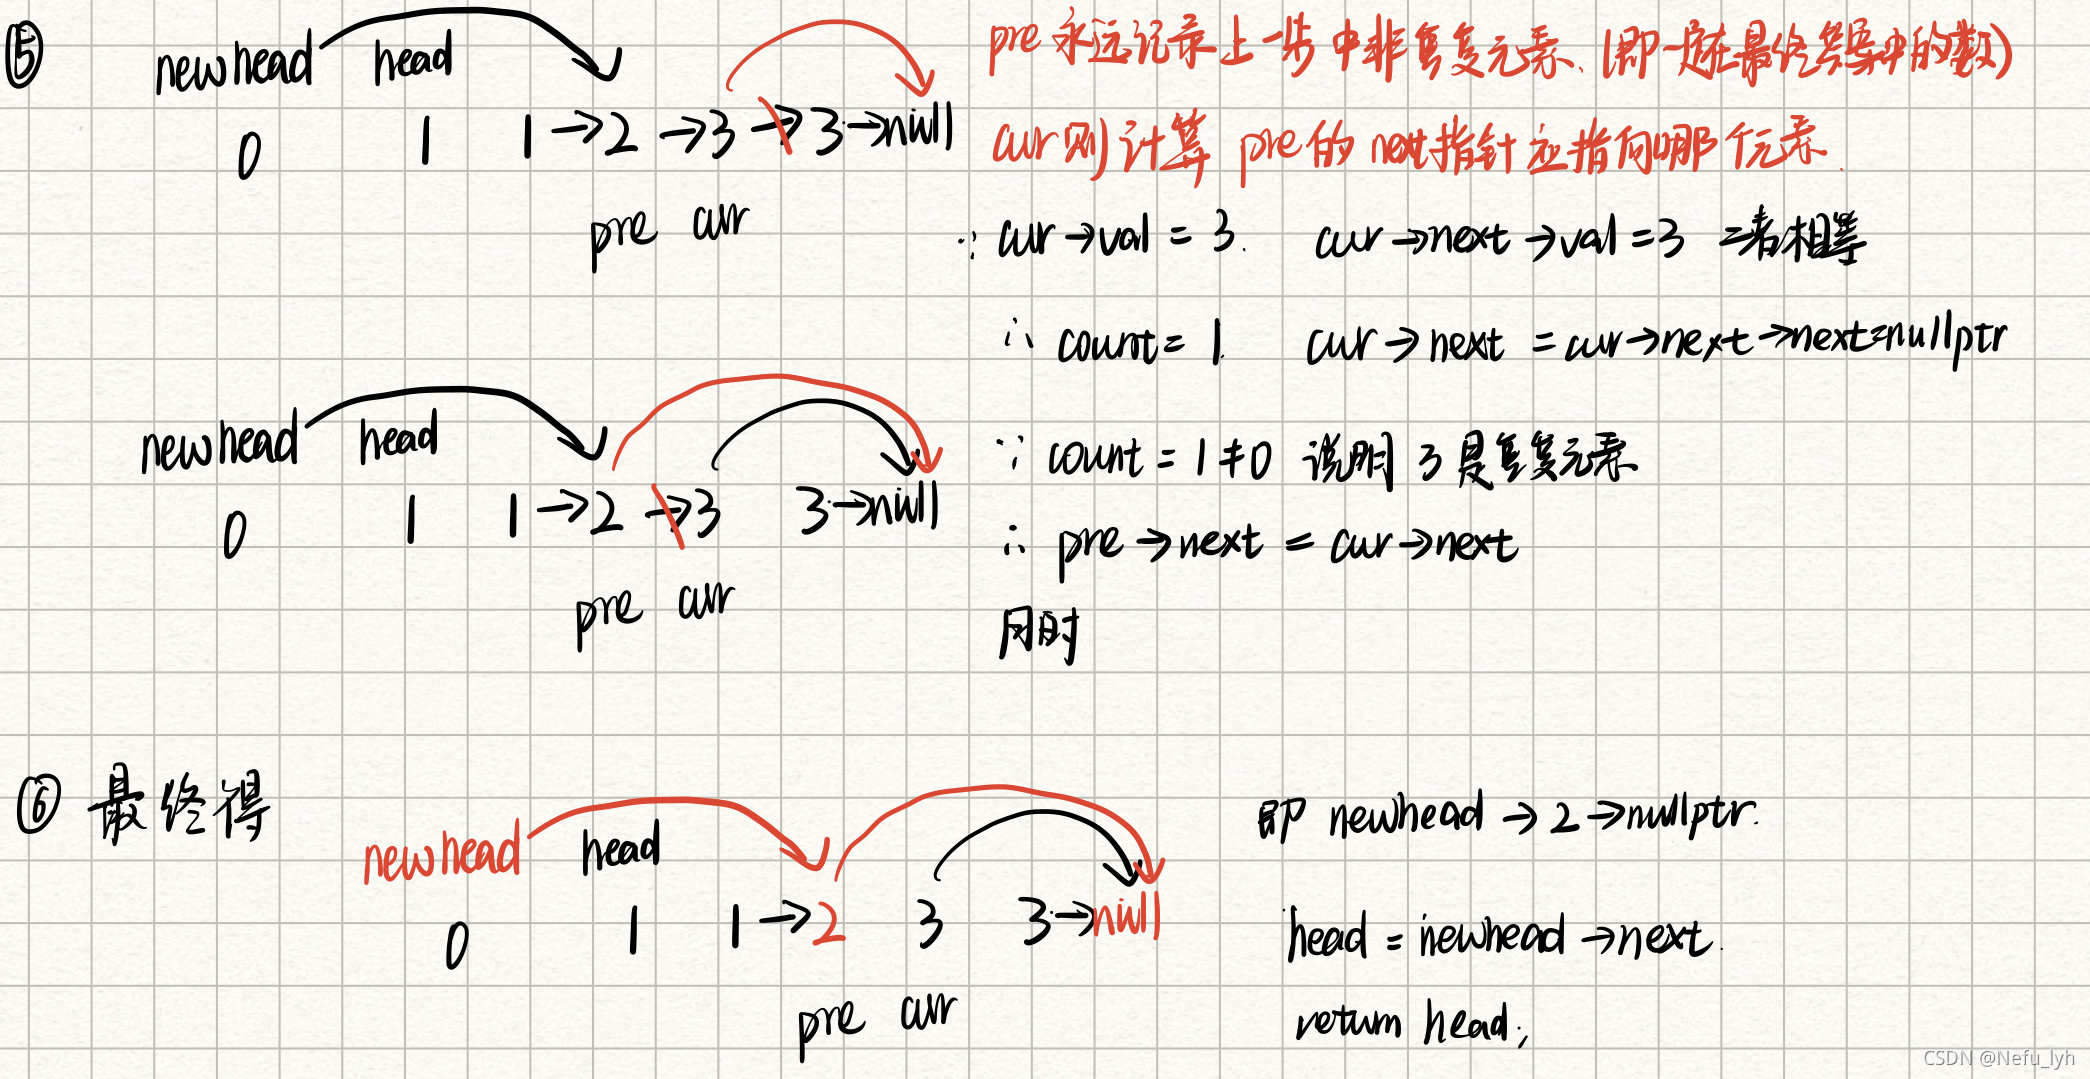 ⑤
newhead head
0 1 1→2→3→3→null
pre cur
pre 永远记录上一步中非重复元素、(即一定在最终答案中的数)
cur则计算 pre的next指针应指向哪个元素.
∵ cur→val = 3. cur→next→val = 3 二者相等
∴ count = 1 cur→next = cur→next→next=nullptr
newhead head
0 1 1→2→3 3→null
pre cur
∵ count = 1≠0 说明 3 是重复元素.
∴ pre→next = cur→next
同时
⑥ 最终得
newhead head
0 1 1→2 3 3→null
pre cur
即 newhead→2→nullptr.
head = newhead→next.
return head;
CSDN @Nefu_lyh